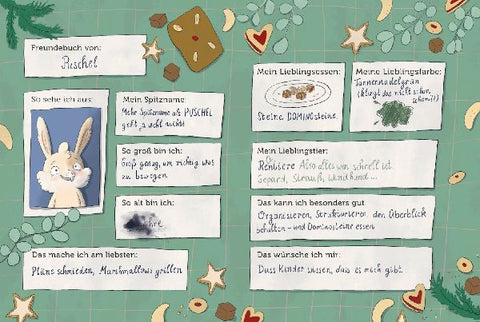 Freundebuch von:
Puschel
So sehe ich aus:
Mein Spitzname:
Mehr Spitzname als PUSCHEL
geht ja wohl nicht
So groß bin ich:
Groß genug, um richtig was
zu bewegen
So alt bin ich:
Das mache ich am liebsten:
Pläne schmieden, Marshmallows grillen
Mein Lieblingsessen:
Steine, DOMINOsteine
Meine Lieblingsfarbe:
Tannennadelgrün
(klingt das nicht schon
Mein Lieblingstier:
Rentiere Also alles was schnell ist
Gepard, Strauß, Windhund...
Das kann ich besonders gut
Organisieren, Strukturieren, den Überblick
behalten - und Dominosteine essen
Das wünsche ich mir:
Dass Kinder wissen, dass es mich gibt